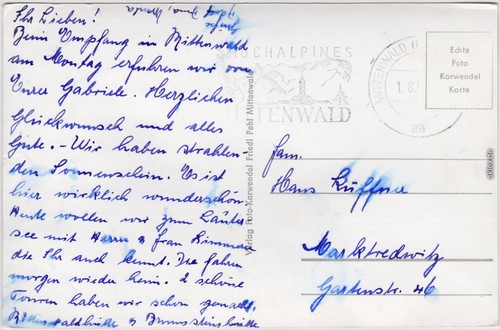 Ihr Lieben!
Beim Empfang in Mittenwald
am Montag erfuhren wir von
Eurer Gabriele. Herzlichen
Glückwunsch und alles
Gute. - Wir haben strahlen-
den Sonnenschein. Es ist
hier wirklich wunderschön
Heute wollen wir zum Lauter
see mit Herrn & Frau Zimmerer
die Ihr auch kennt. Die fahren
morgen wieder heim. 2 schöne
Touren haben wir schon gemacht,
Mittenwaldhütte & Brunnsteinhütte
HOCHALPINES
MITTENWALD
MITTENWALD
1.8.
aa
Echte
Foto
Karwendel
Karte
Verlag Foto-Karwendel Friedl Pehl Mittenwald
Fam.
Hans Küffner
Marktredwitz
Gartenstr. 46